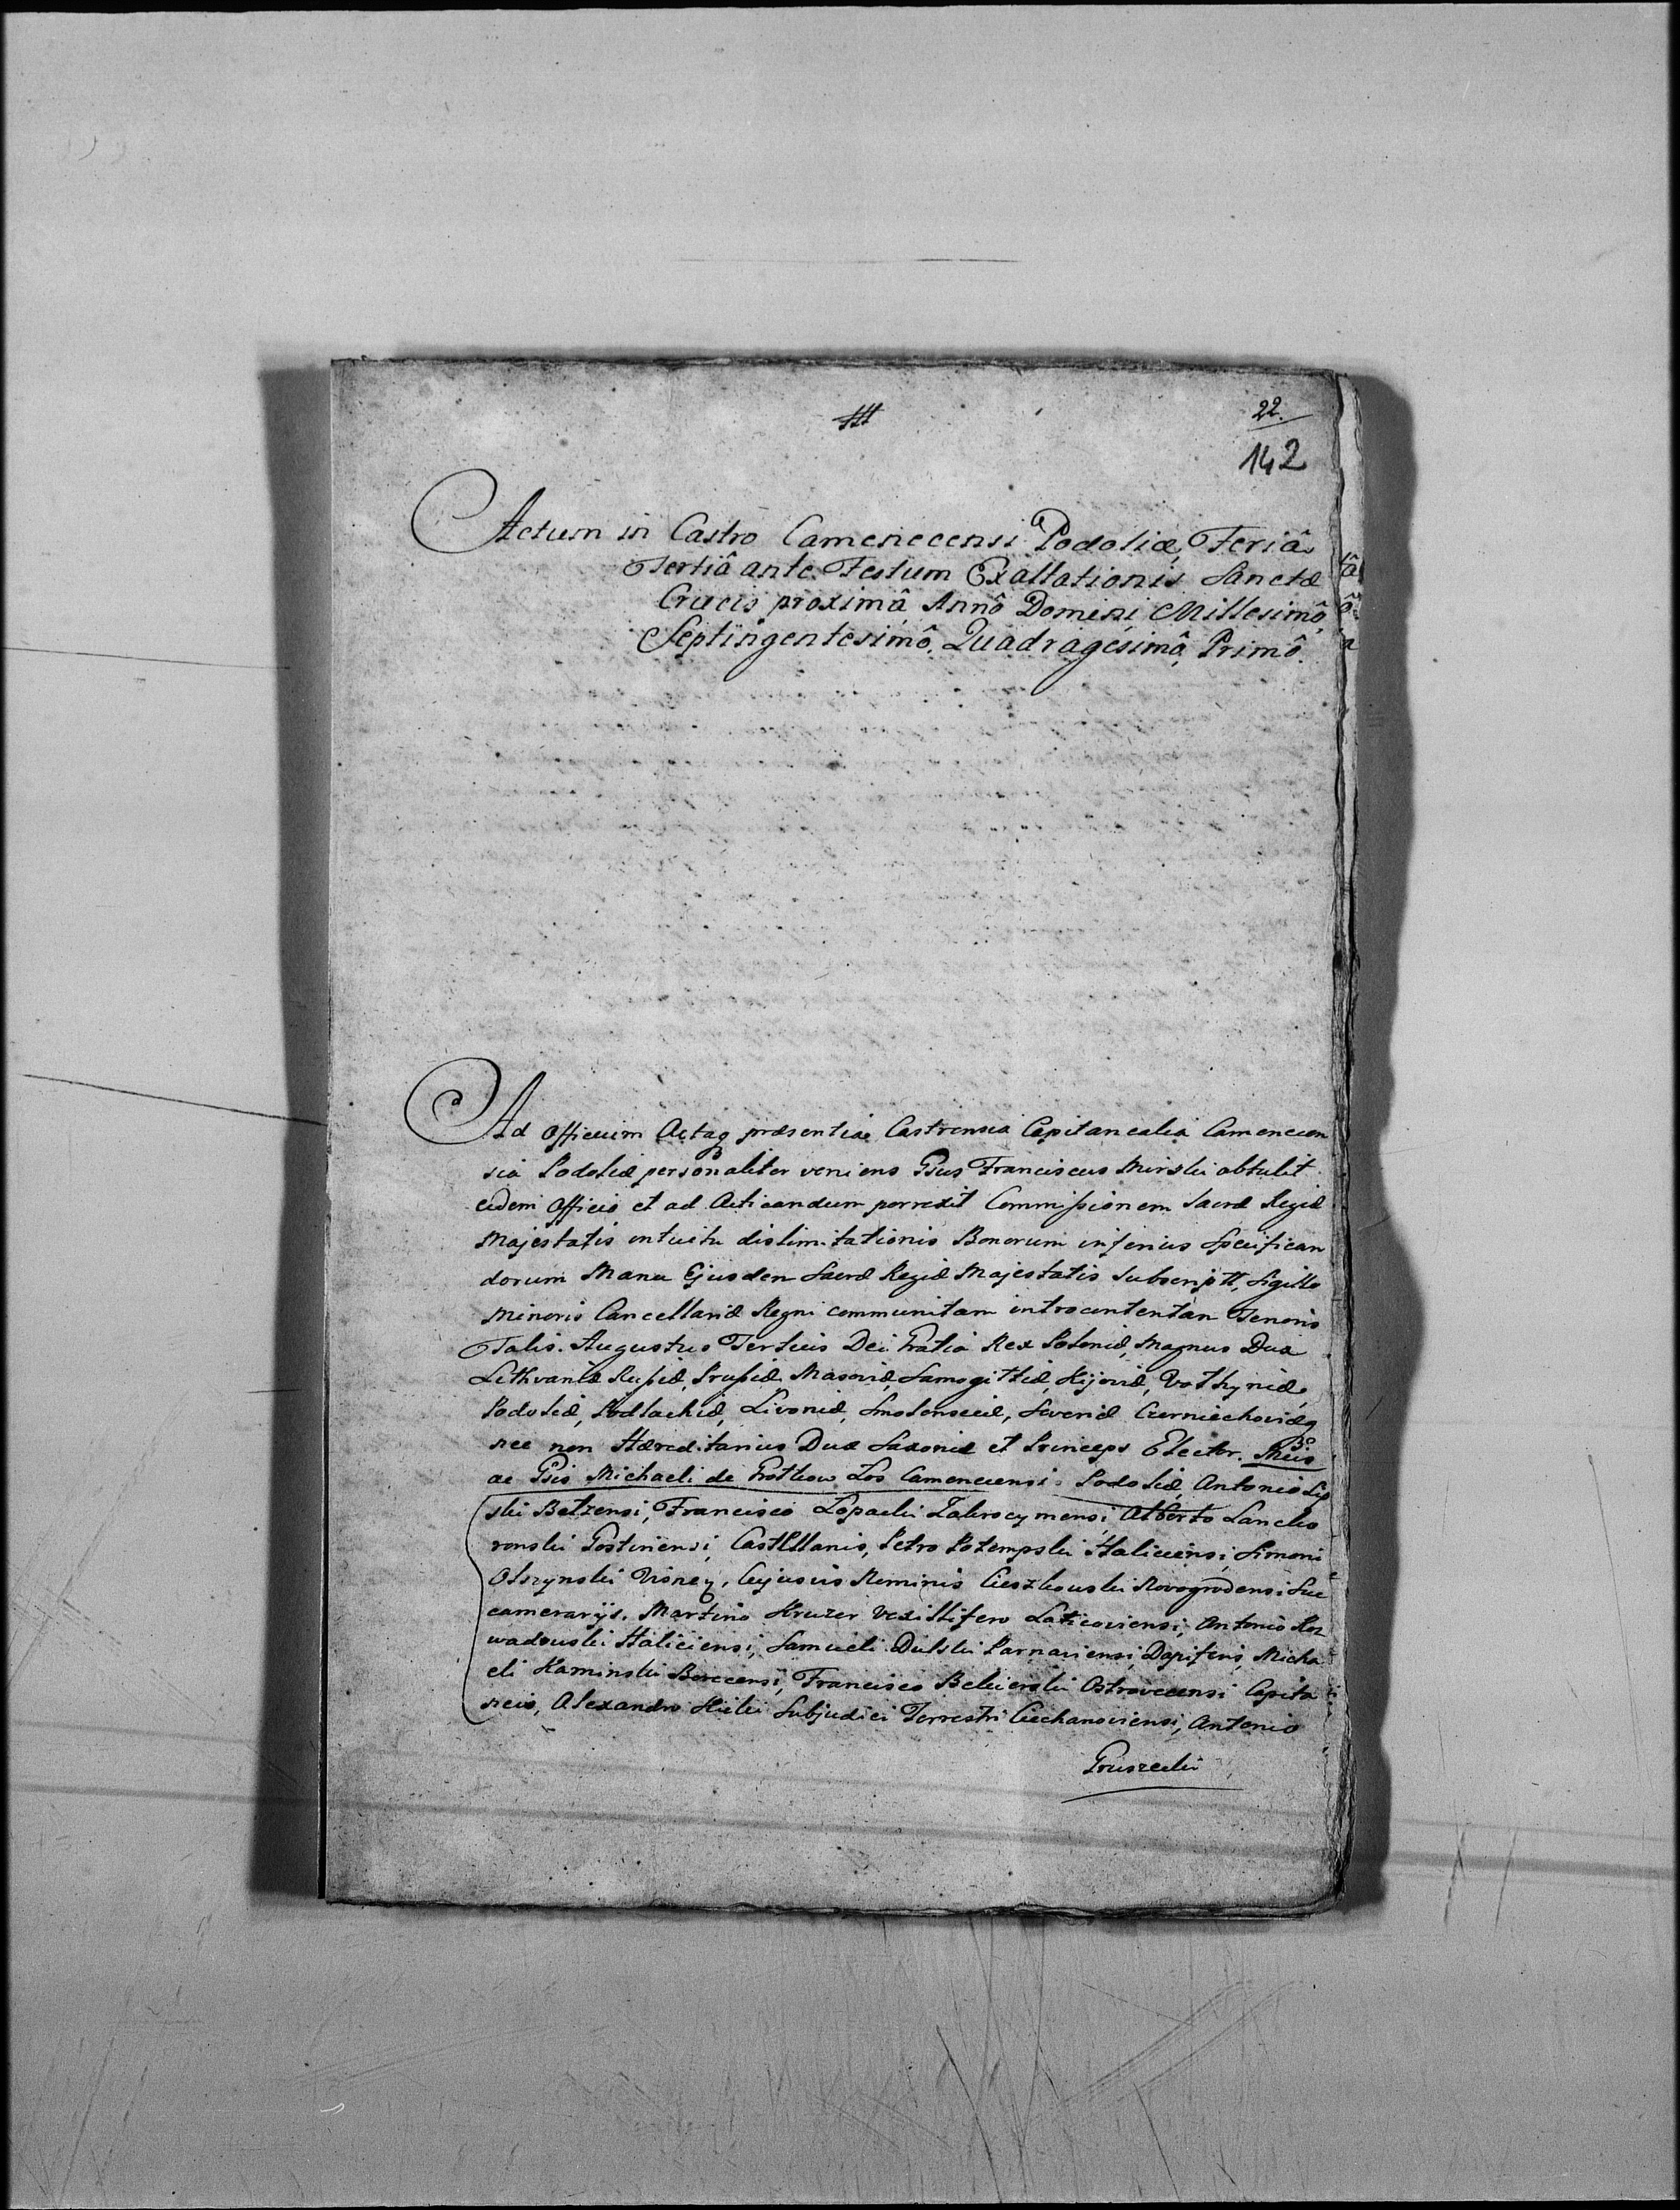 22.
142
Actum in Castro Camenecensi Podoliæ, Feriâ
Tertiâ ante Festum Exaltationis Sanctæ
Crucis proximâ Annô Domini Millesimô
Septingentesimô, Quadragesimô, Primô.
Ad Officium Actaq præsentia Castrensia Capitanealia Camenecen
sia Podoliæ personaliter veniens Gsus Franciscus Mirski obtulit
eidem Officio et ad Acticandum porrexit Commissionem Sacræ Regiæ
Majestatis intuitu dislimitationis Bonorum inferius Specifican
dorum Manu Ejusdem Sacræ Regiæ Majestatis Subscriptt, Sigillo
Minoris Cancellariæ Regni communitam introcontentan Tenoris
Talis. Augustus Tertius Dei Gratia Rex Poloniæ, Magnus Dux
Lithvaniæ Russiæ, Prussiæ Masoviæ, Samogittiæ, Kijoviæ, Vothyniæ,
Podoliæ, Podlachiæ, Livoniæ, Smolensciæ, Severiæ Czerniechoviæq
nec non Hæreditarius Dux Saxoniæ et Princeps Elector.
ac Gsis Michaeli de Grotkow Los Camenecensi Podoliæ, Antonio Lip
ski Betzensi, Francisco Lopacki Zakrocymensi, Alberto Lancko
ronski Gostinensi, Castellanis, Petro Potempski Haliciensi, Simoni
Olszynski Visneg, Cujusvis Nominis Cieszkowski Novogrodensi Suc
camerarijs. Martino Kruzer Vexillifero Laticoviensi, Antonio Roz
wadowski Haliciensi, Samueli Dulski Parnaviensi, Dapiferis, Micha
eli Kaminski Borecensi, Francisco Bekierski Ostrovecensi Capita
neis, Alexandro Hicki Subjudici Terrestri Ciechanoviensi, Antonio
Gruszecki